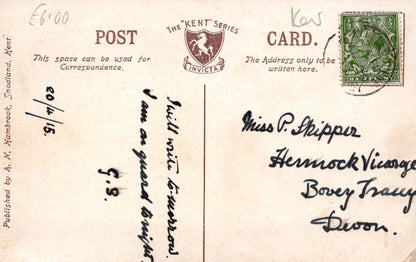 £6·00
Kent
POST
THE "KENT" SERIES
INVICTA
CARD.
This space can be used for
Correspondence.
The Address only to be
written here.
HALFPENNY
Published by A. N. Hambrook, Snodland, Kent.
20/4/15.
I will write to-morrow.
I am on guard tonight
G.S.
Miss P. Skipper
Hennock Vicarage
Bovey Tracey
Devon.